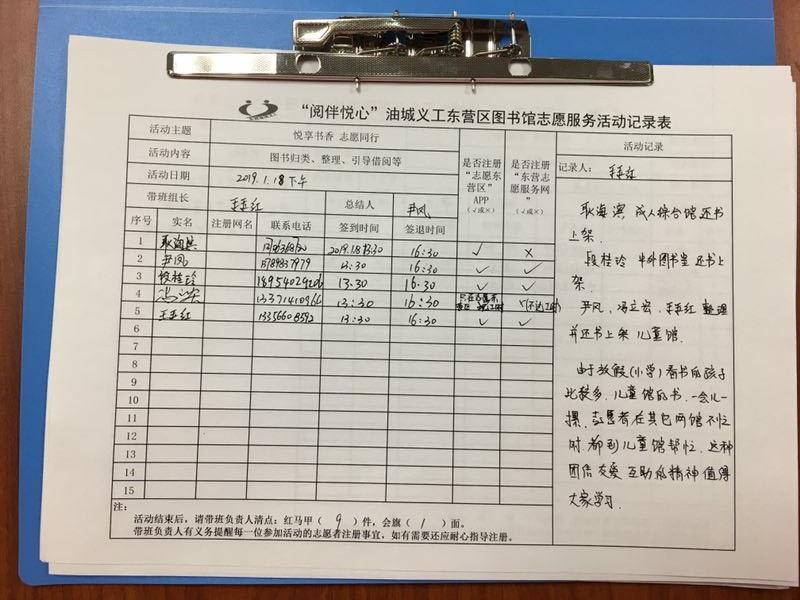 “阅伴悦心”油城义工东营区图书馆志愿服务活动记录表
活动主题 悦享书香 志愿同行
活动内容 图书归类、整理、引导借阅等
活动日期 2019.1.18下午
带班组长 总结人 尹凤
是否注册“志愿东营区”APP（√或×）
是否注册“东营志愿服务网”（√或×）
序号 实名 注册网名 联系电话 签到时间 签退时间
1 耿海滨 16:30 √ ×
2 尹凤 13:30 16:30
3 段桂玲 13:30 16:30 √ √
4 13371410966 13:30 16:30
5 13:30 16:30 √ √
6
7
8
9
10
11
12
13
14
15
注：
活动结束后，请带班负责人清点：红马甲（ 9 ）件，会旗（ 1 ）面。
带班负责人有义务提醒每一位参加活动的志愿者注册事宜，如有需要还应耐心指导注册。
活动记录
记录人：
耿海滨，成人综合馆还书
上架.
段桂玲 中外图书室还书上
架.
尹凤、冯立宏、 整理
并还书上架儿童馆.
由于放假(小学)看书的孩子
比较多.儿童馆的书.一会儿一
摞,志愿者在其它两馆不忙
时.都到儿童馆帮忙.这种
团结友爱 互助的精神值得
大家学习.